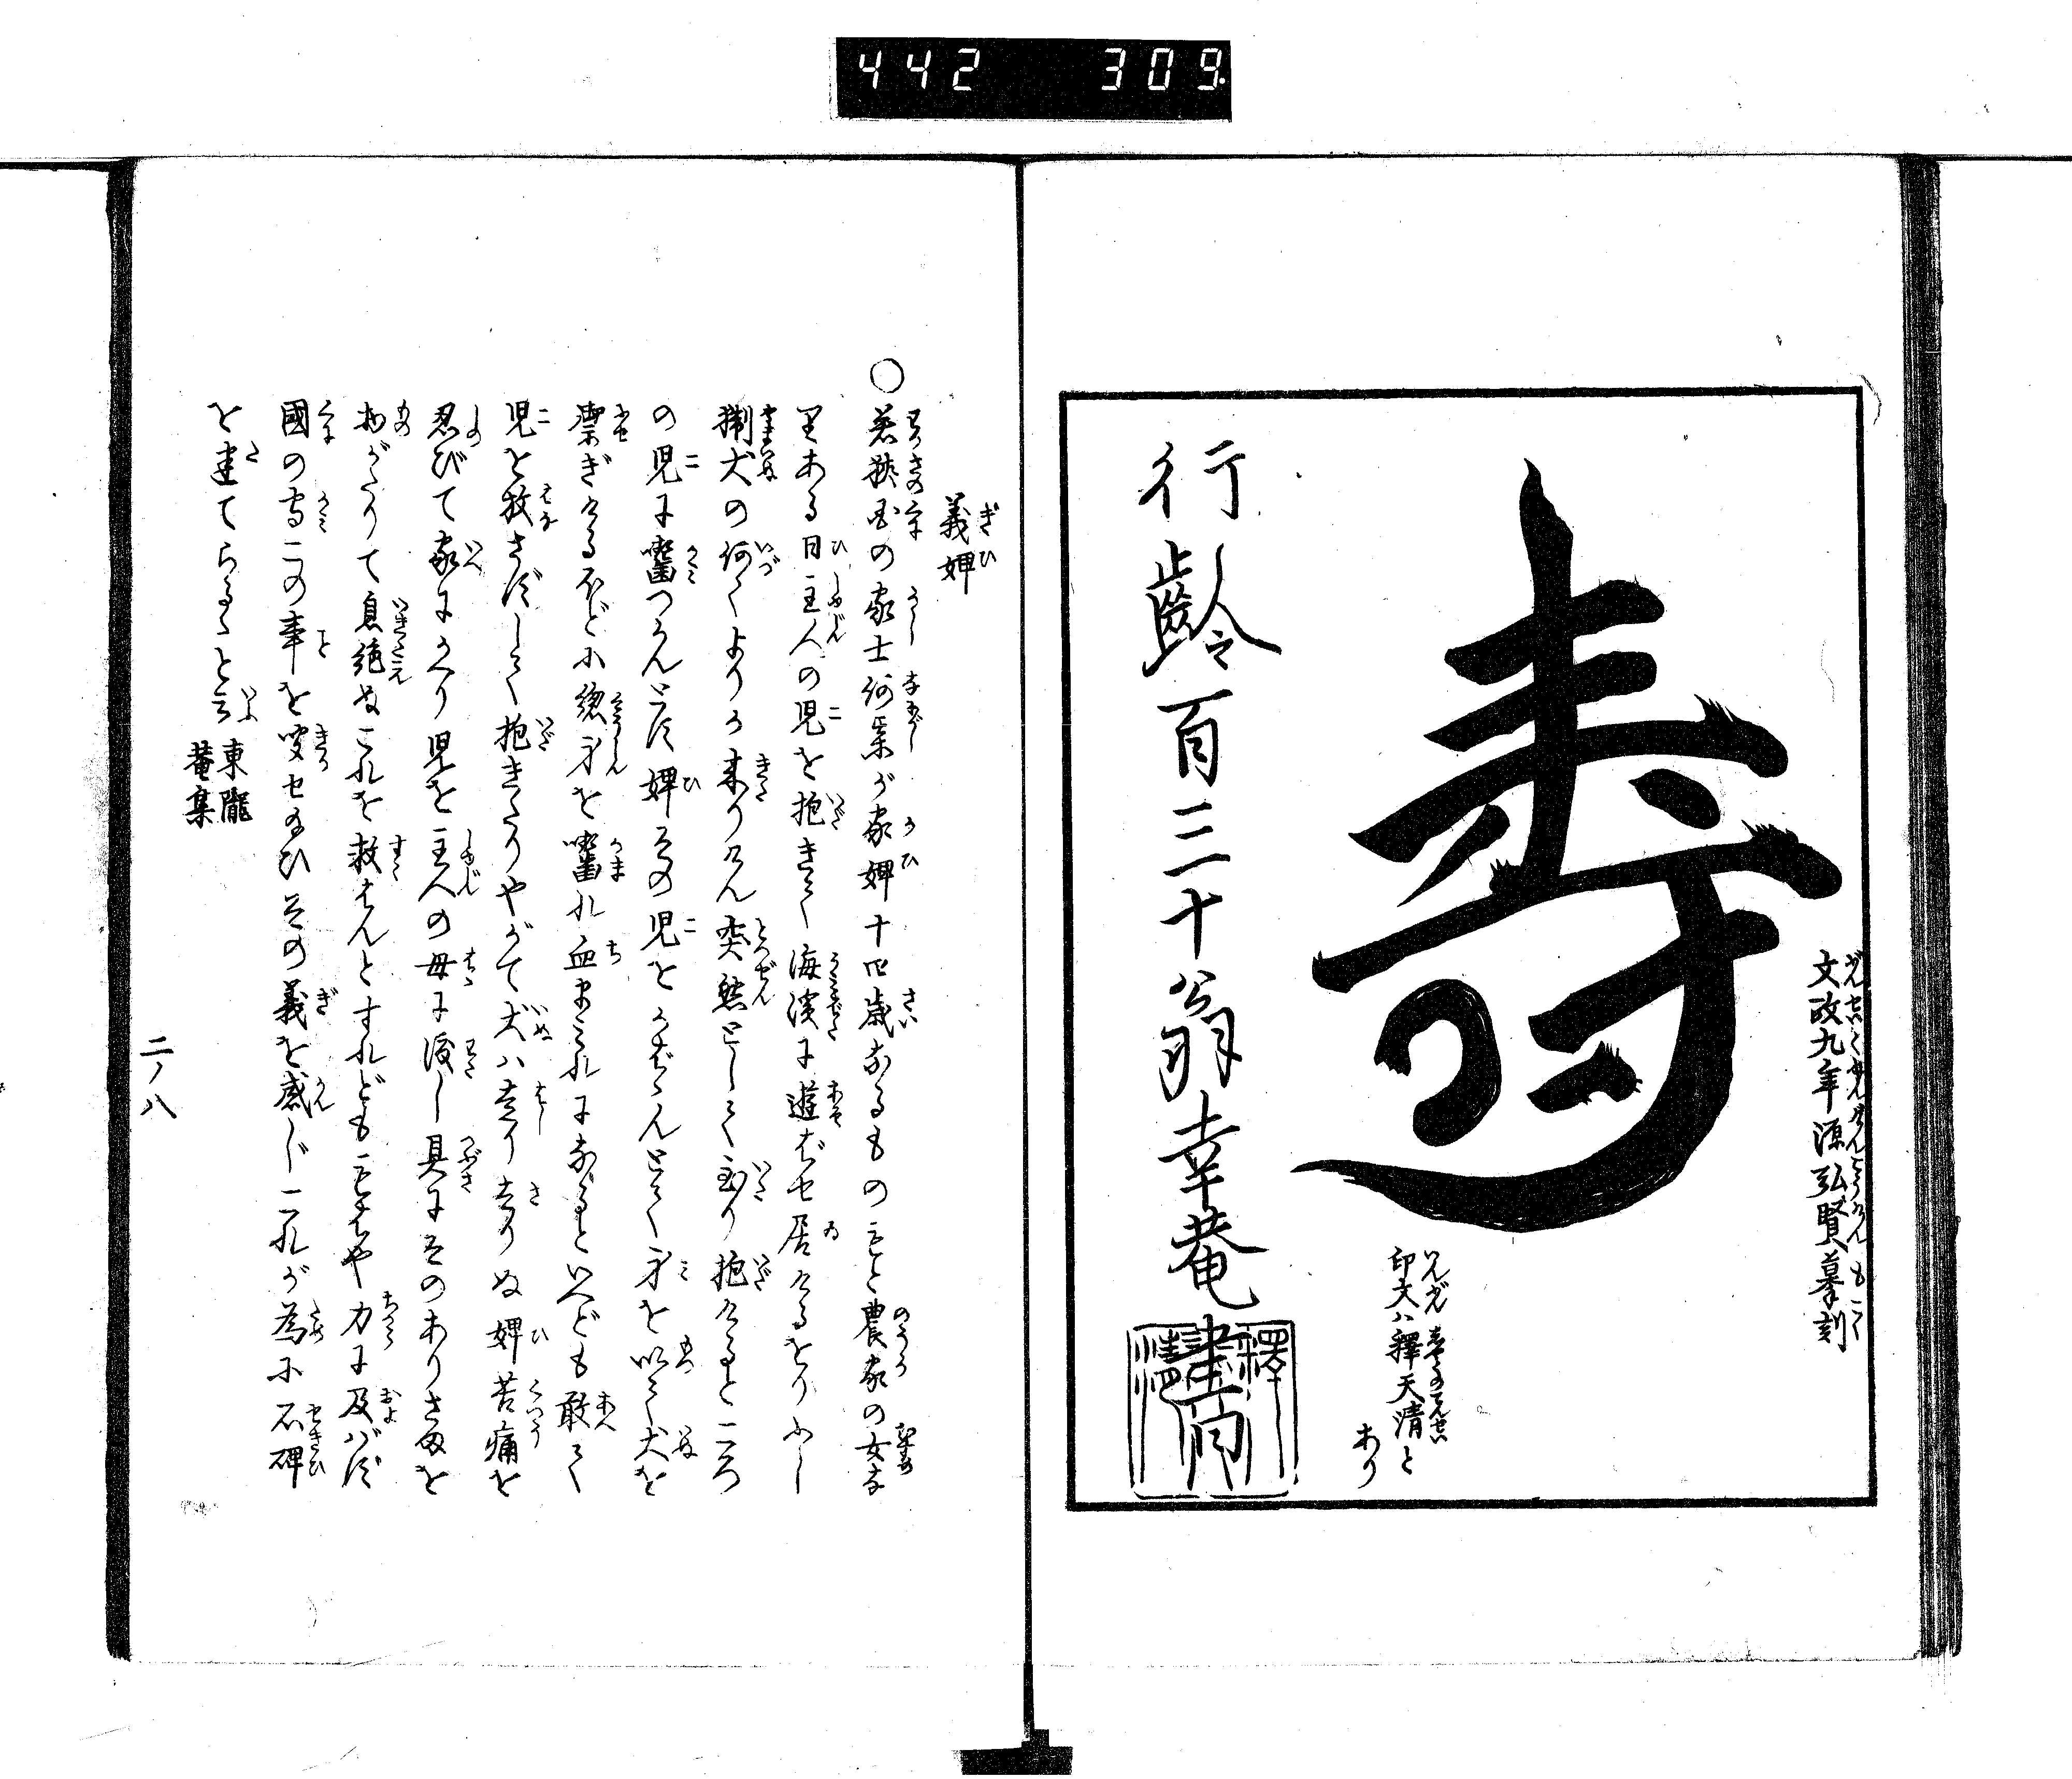 442 309
壽
文政九年源弘賢摹刻
印文ハ釋天清と
あり
行齡百三十翁幸菴書
義婢
○若狭国の家士何某が家婢十四歳なるものもと農家の女な
りある日主人の児を抱きて海濱に遊ばせ居けるをりふし
猘犬の何くよりか来りけん突然として至り抱けるところ
の児に嚙つかんとす婢その児をかばゝんとて身を以て犬を
禦ぎけるほどに総身を嚙れ血まみれになるといへども敢て
児を放さずして抱きたりやがて犬ハ走り去りぬ婢苦痛を
忍びて家にかへり児を主人の母に渡し具にそのありさまを
物がたりて息絶ぬこれを救はんとすれどももはや力に及バず
國の守この事を聞せ給ひその義を感じこれが為に石碑
を建てらるゝと云
東隴
菴集
二ノ八